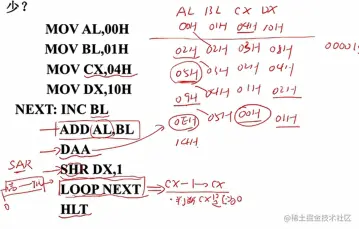 少？
MOV AL,00H
MOV BL,01H
MOV CX,04H
MOV DX,10H
NEXT: INC BL
ADD AL,BL
DAA
SHR DX,1
LOOP NEXT
HLT
SAR
0
CX-1→CX
AL BL CX DX
00H 01H 04H 10H
02H 02H 03H 08H
05H 03H 02H 04H
09H 04H 01H 02H
05H 00H 01H
14H
@稀土掘金技术社区